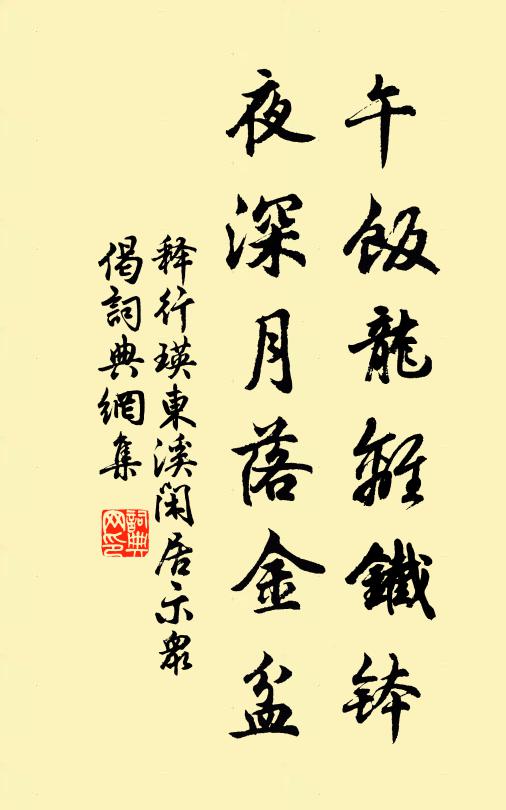 午飯龍離鐵鉢
夜深月落金盆
释行瑛東溪閑居示衆
偈詞典網集
詞典
网印